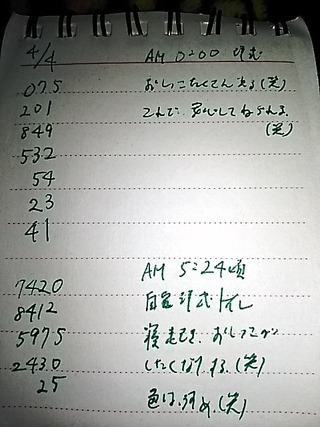 4/4 AM 0:00 頃
075 おしっこたくさん出る(笑)
201 これで、安心してねられる
849 (笑)
532
54
23
41
AM 5:24頃
7420 自宅 洋式トイレ
8412 寝起き、おしっこが
5975 したくなりする。(笑)
2430
25 色は、うすめ。(笑)